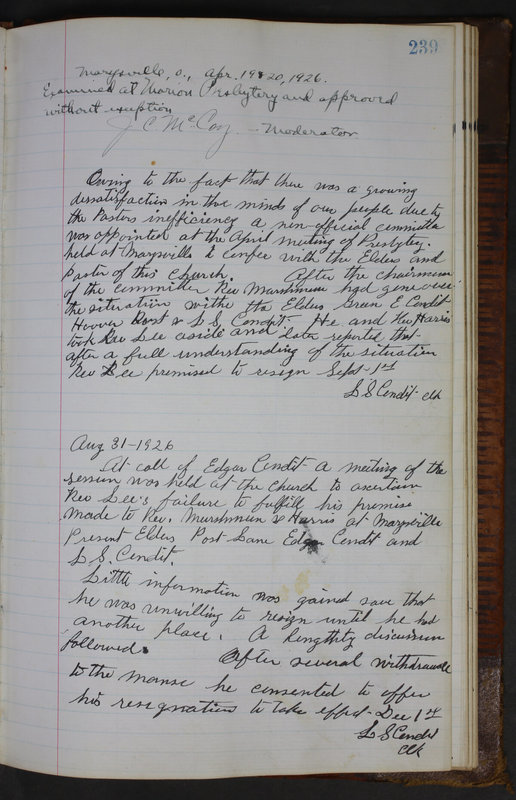 239
Marysville, O., Apr. 19 & 20, 1926.
Examined at Marion Presbytery and approved
without exception
J C. McCoy. - Moderator
Owing to the fact that there was a growing
dissatisfaction in the minds of our people due to
the Pastors inefficiency a non-official committee
was appointed at the April meeting of Presbytery
held at Marysville to confer with the Elders and
Pastor of this church. After the chairman
of the committee Rev Marshman had gone over
the situation withe the Elders Green E Condit
Hoover Post & L S Condit He and Rev Harris
took Rev Lee aside and later reported that
after a full understanding of the situation
Rev Lee promised to resign Sept 1st
L S Condit clk
Aug 31-1926
At call of Edgar Condit a meeting of the
session was held at the church to ascertain
Rev Lee's failure to fulfill his promise
made to Rev. Marshman & Harris at Marysville
Present Elders Post Lane Edgar Condit and
L S. Condit.
Little information was gained save that
he was unwilling to resign until he had
another place. A lengthty discussion
followed. After several withdrawals
to the manse he consented to offer
his resignation to take effect - Dec 1st
L S Condit
Clk